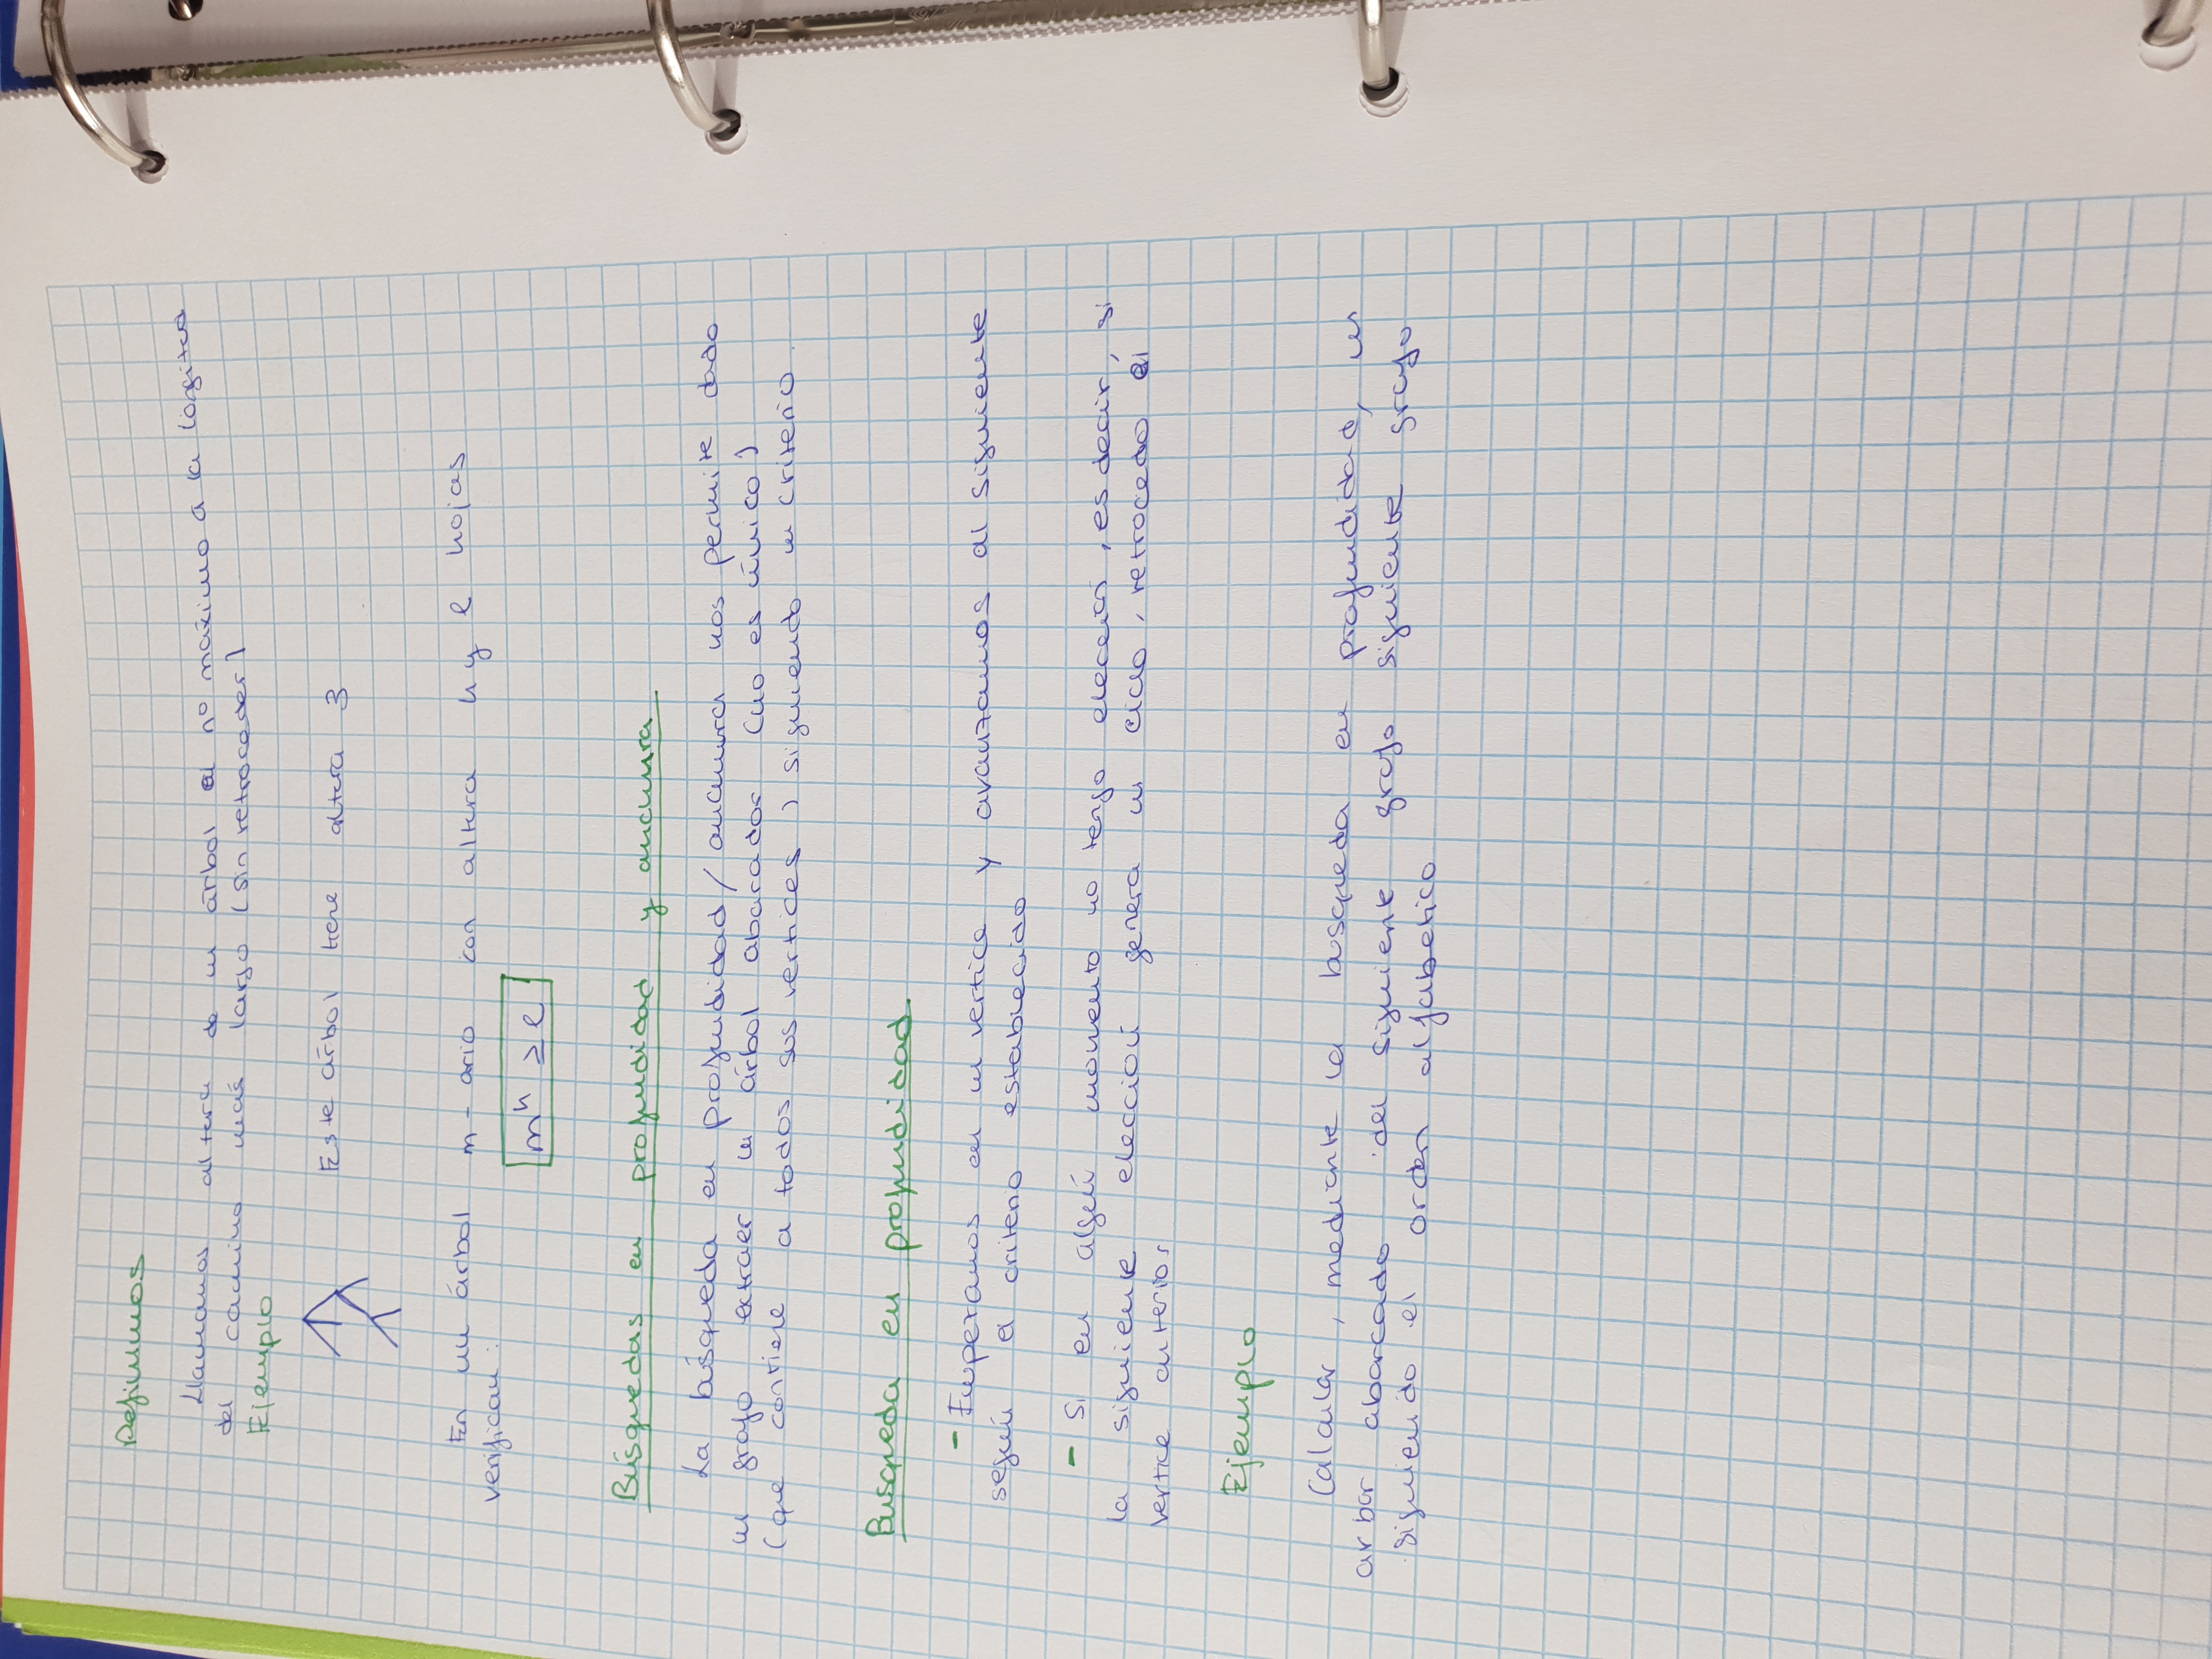 Definimos
Llamamos altura de un árbol al nº máximo a la longitud
del camino más largo (sin retroceder)
Ejemplo
Este árbol tiene altura 3
En un árbol m-ario con altura h y l hojas
verifican:
m^h ≥ l
Búsquedas en profundidad y anchura
La búsqueda en profundidad/anchura nos permite dado
un grafo extraer un árbol abarcador (no es único)
(que contiene a todos sus vertices) siguiendo un criterio.
Búsqueda en profundidad
- Empezamos en un vertice y avanzamos al siguiente
según el criterio establecido
- Si en algún momento no tengo elección, es decir, si
la siguiente elección genera un ciclo, retrocedo al
vertice anterior
Ejemplo
Calcular, mediante la busqueda en profundidad, un
arbor abarcado del siguiente grafo siguiente grafo
siguiendo el orden alfabetico